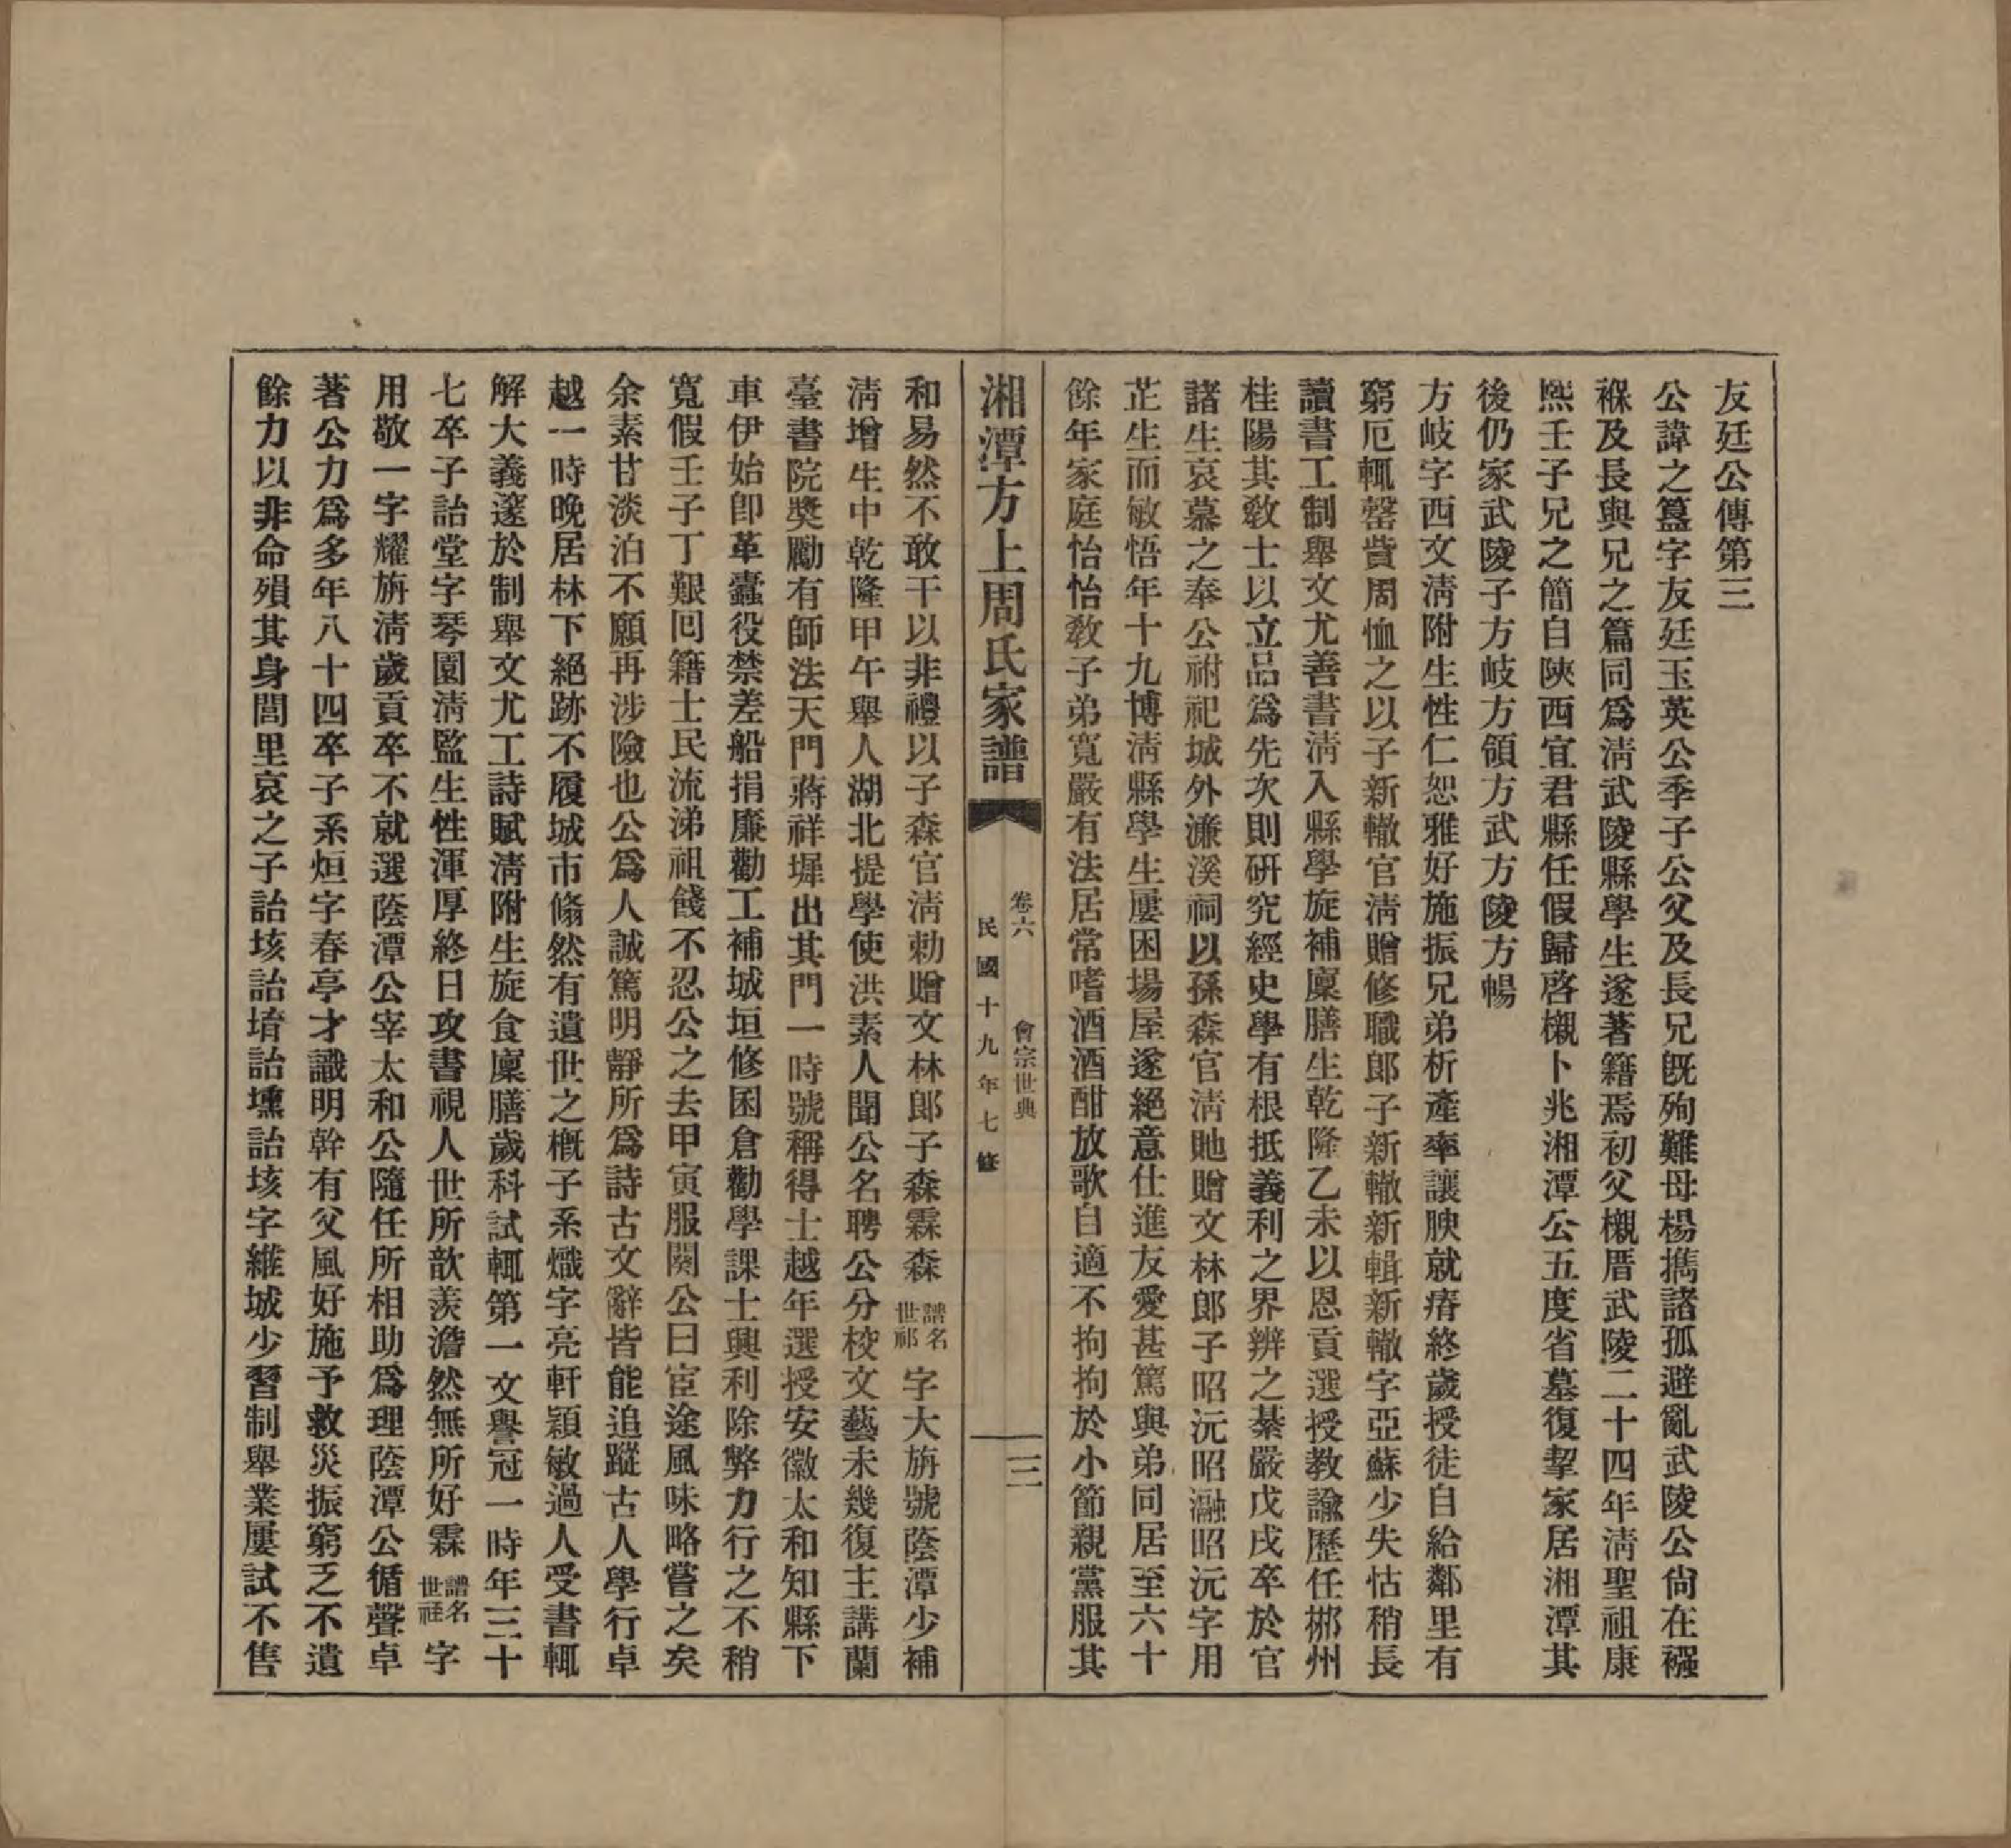 友廷公傳第三
公諱之簋字友廷玉英公季子公父及長兄旣殉難母楊攜諸孤避亂武陵公尙在襁
褓及長與兄之篇同爲淸武陵縣學生遂著籍焉初父櫬厝武陵二十四年淸聖祖康
熙壬子兄之簡自陝西宜君縣任假歸啓櫬卜兆湘潭公五度省墓復挈家居湘潭其
後仍家武陵子方岐方領方武方陵方暢
方岐字西文淸附生性仁恕雅好施振兄弟析產率讓腴就瘠終歲授徒自給鄰里有
窮厄輒罄貲周恤之以子新轍官淸贈修職郎子新轍新輯新轍字亞蘇少失怙稍長
讀書工制舉文尤善書淸入縣學旋補廩膳生乾隆乙未以恩貢選授敎諭歷任郴州
桂陽其敎士以立品爲先次則研究經史學有根抵義利之界辨之綦嚴戊戌卒於官
諸生哀慕之奉公祔祀城外濂溪祠以孫森官淸貤贈文林郎子昭沅昭瀜昭沅字用
芷生而敏悟年十九博淸縣學生屢困場屋遂絕意仕進友愛甚篤與弟同居至六十
餘年家庭怡怡敎子弟寬嚴有法居常嗜酒酒酣放歌自適不拘拘於小節親黨服其
湘潭方上周氏家譜
卷六
會宗世典
民國十九年七修
三
和易然不敢干以非禮以子森官淸勅贈文林郎子森霖森譜名世祁字大旃號蔭潭少補
淸增生中乾隆甲午舉人湖北提學使洪素人聞公名聘公分校文藝未幾復主講蘭
臺書院獎勵有師法天門蔣祥墀出其門一時號稱得士越年選授安徽太和知縣下
車伊始卽革蠹役禁差船捐廉勸工補城垣修囷倉勸學課士興利除弊力行之不稍
寬假壬子丁艱囘籍士民流涕祖餞不忍公之去甲寅服闋公曰宦途風味略嘗之矣
余素甘淡泊不願再涉險也公爲人誠篤明靜所爲詩古文辭皆能追蹤古人學行卓
越一時晚居林下絕跡不履城市翛然有遺世之槪子系熾字亮軒穎敏過人受書輒
解大義邃於制舉文尤工詩賦淸附生旋食廩膳歲科試輒第一文譽冠一時年三十
七卒子詒堂字琴園淸監生性渾厚終日攻書視人世所歆羨澹然無所好霖譜名世字
用敬一字耀旃淸歲貢卒不就選蔭潭公宰太和公隨任所相助爲理蔭潭公循聲卓
著公力爲多年八十四卒子系烜字春亭才識明幹有父風好施予救災振窮乏不遺
餘力以非命殞其身閭里哀之子詒垓詒堉詒壎詒垓字維城少習制舉業屢試不售